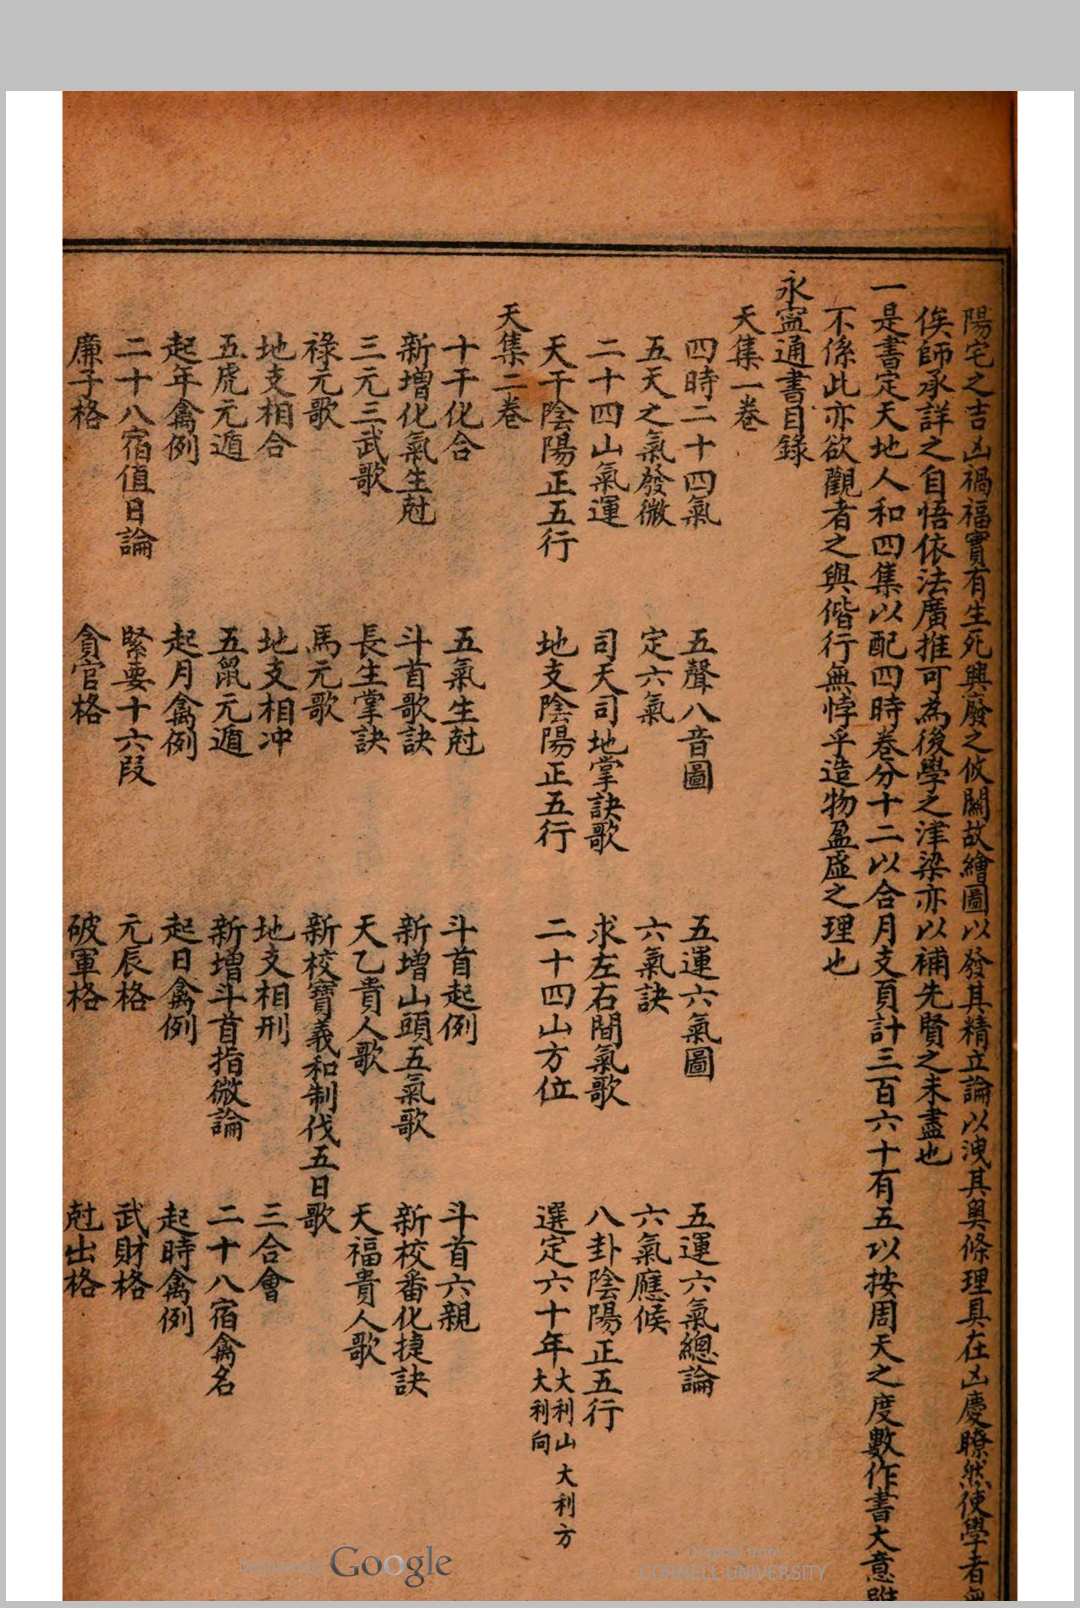 陽宅之吉凶禍福實有生死興廢之攸關故繪圖以發其精立論以洩其奧條理具在凶慶瞭然使學者
俟師承詳之自悟依法廣推可為後學之津梁亦以補先賢之未盡也
一是書定天地人和四集以配四時卷分十二以合月支頁計三百六十有五以按周天之度數作書大意
不係此亦欲觀者之與偕行無悖乎造物盈虛之理也
永寧通書目錄
天集一卷
四時二十四氣 五聲八音圖 五運六氣圖 五運六氣總論
五天之氣發微 定六氣 六氣訣 六氣應候
二十四山氣運 司天司地掌訣歌 求左右間氣歌 八卦陰陽正五行
天干陰陽正五行 地支陰陽正五行 二十四山方位 選定六十年大利山大利向 大利方
天集二卷
十干化合 五氣生尅 斗首起例 斗首六親
新增化氣生尅 斗首歌訣 新增山頭五氣歌 新校番化捷訣
三元三武歌 長生掌訣 天乙貴人歌 天福貴人歌
祿元歌 馬元歌 新校寶義和制伐五日歌
地支相合 地支相冲 地支相刑 三合會
五虎元遁 五鼠元遁 新增斗首指微論 二十八宿禽名
起年禽例 起月禽例 起日禽例 起時禽例
二十八宿值日論 緊要十六段 元辰格 武財格
廉子格 貪官格 破軍格 尅出格
Google
Original from
CORNELL UNIVERSITY